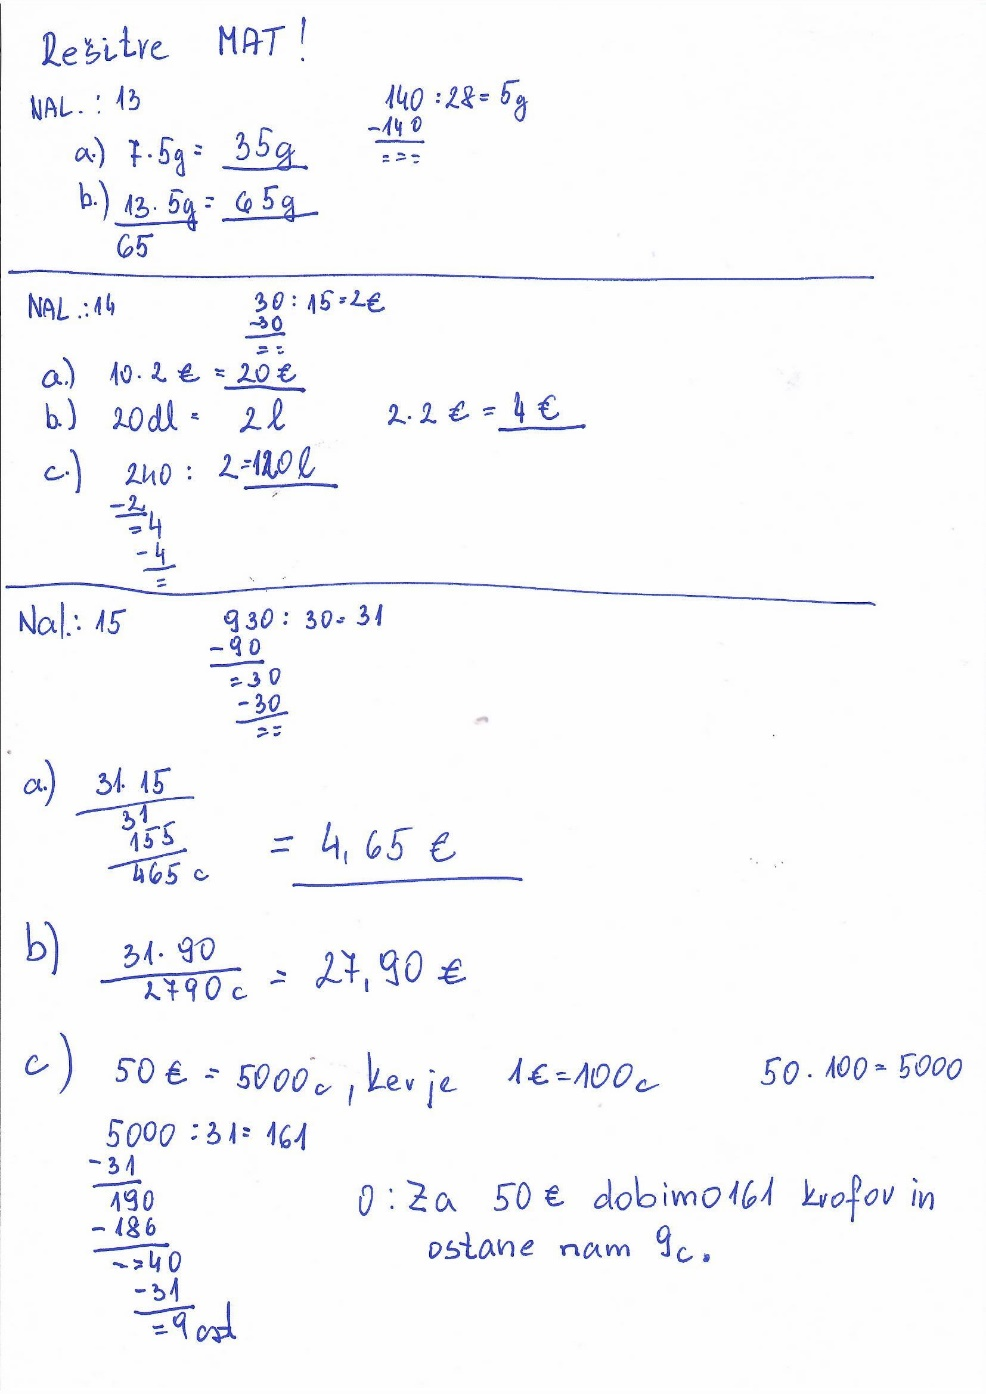 Rešitve MAT!
NAL.: 13
140 : 28 = 5g
-140
===
a.) 7 · 5g = 35g
b.) 13 · 5g = 65g
65
NAL.: 14
30 : 15 = 2€
-30
==
a.) 10 · 2 € = 20 €
b.) 20 dl = 2 l 2 · 2 € = 4 €
c.) 240 : 2 = 120 l
-2
=4
-4
=
Nal.: 15
930 : 30 = 31
-90
=30
-30
==
a.) 31 · 15
31
155
465 c = 4,65 €
b) 31 · 90
2790 c = 27,90 €
c) 50 € = 5000 c, ker je 1€ = 100 c 50 · 100 = 5000
5000 : 31 = 161
-31
190
-186
==40
-31
=9 ost
O: Za 50 € dobimo 161 krofov in
ostane nam 9c.